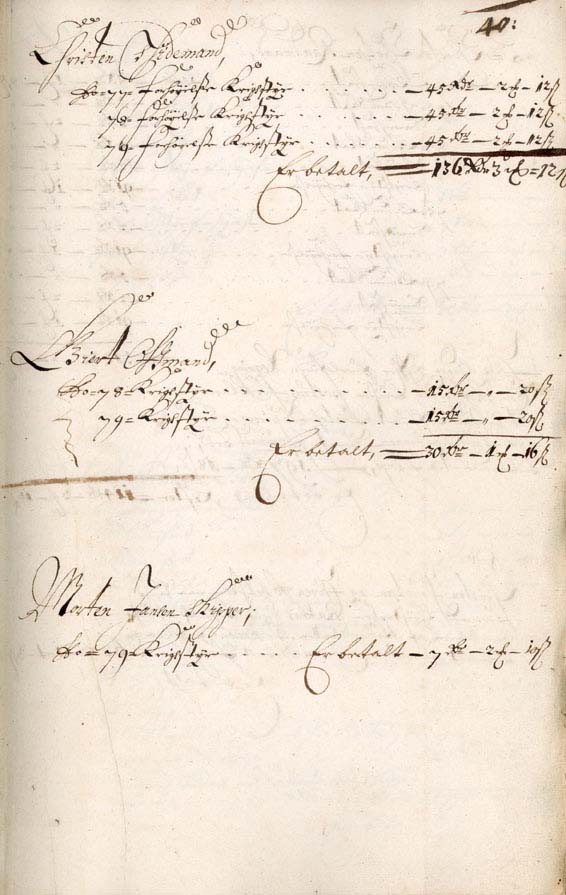 40:
Christen Tydemand,
Ao= 77= forhøyelse Krigstyr ...... — 45 Rdr — 2 ₰ — 12 ß
78= forhøyelse Krigstyr ...... — 45 Rdr — 2 ₰ — 12 ß
79= forhøyelse Krigstyr ...... — 45 Rdr — 2 ₰ — 12 ß
Er betalt, = 136 Rdr 3 ₰ = 12 ß
Biert
Ao= 78= Krigstyr ......... — 15 Rdr — „ — 20 ß
79= Krigstyr ......... — 15 Rdr — „ — 20 ß
Er betalt, = 30 Rdr — 1 ₰ — 16 ß
Morten Jansen Skipper;
Ao= 79= Krigstyr .... Er betalt — 7 Rdr — 2 ₰ — 10 ß